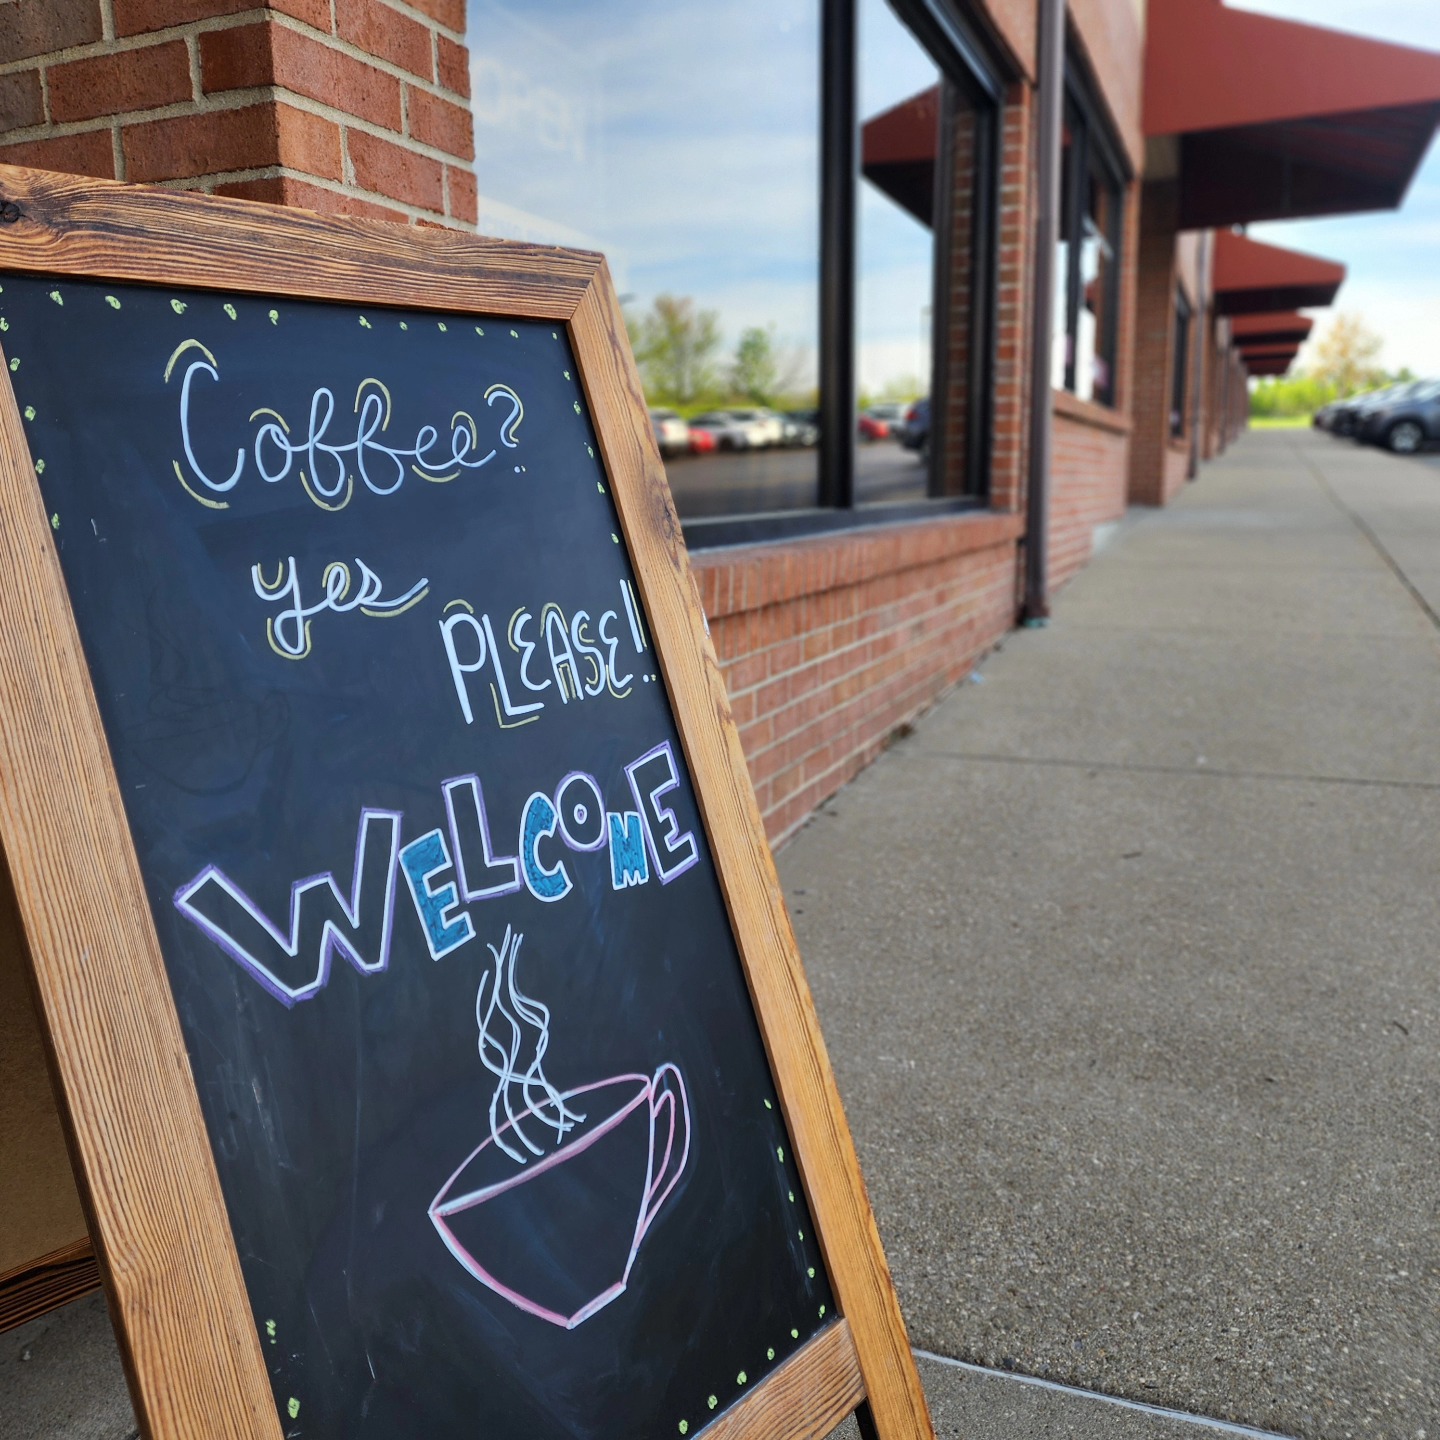 Coffee?
yes
PLEASE!!
WELCOME